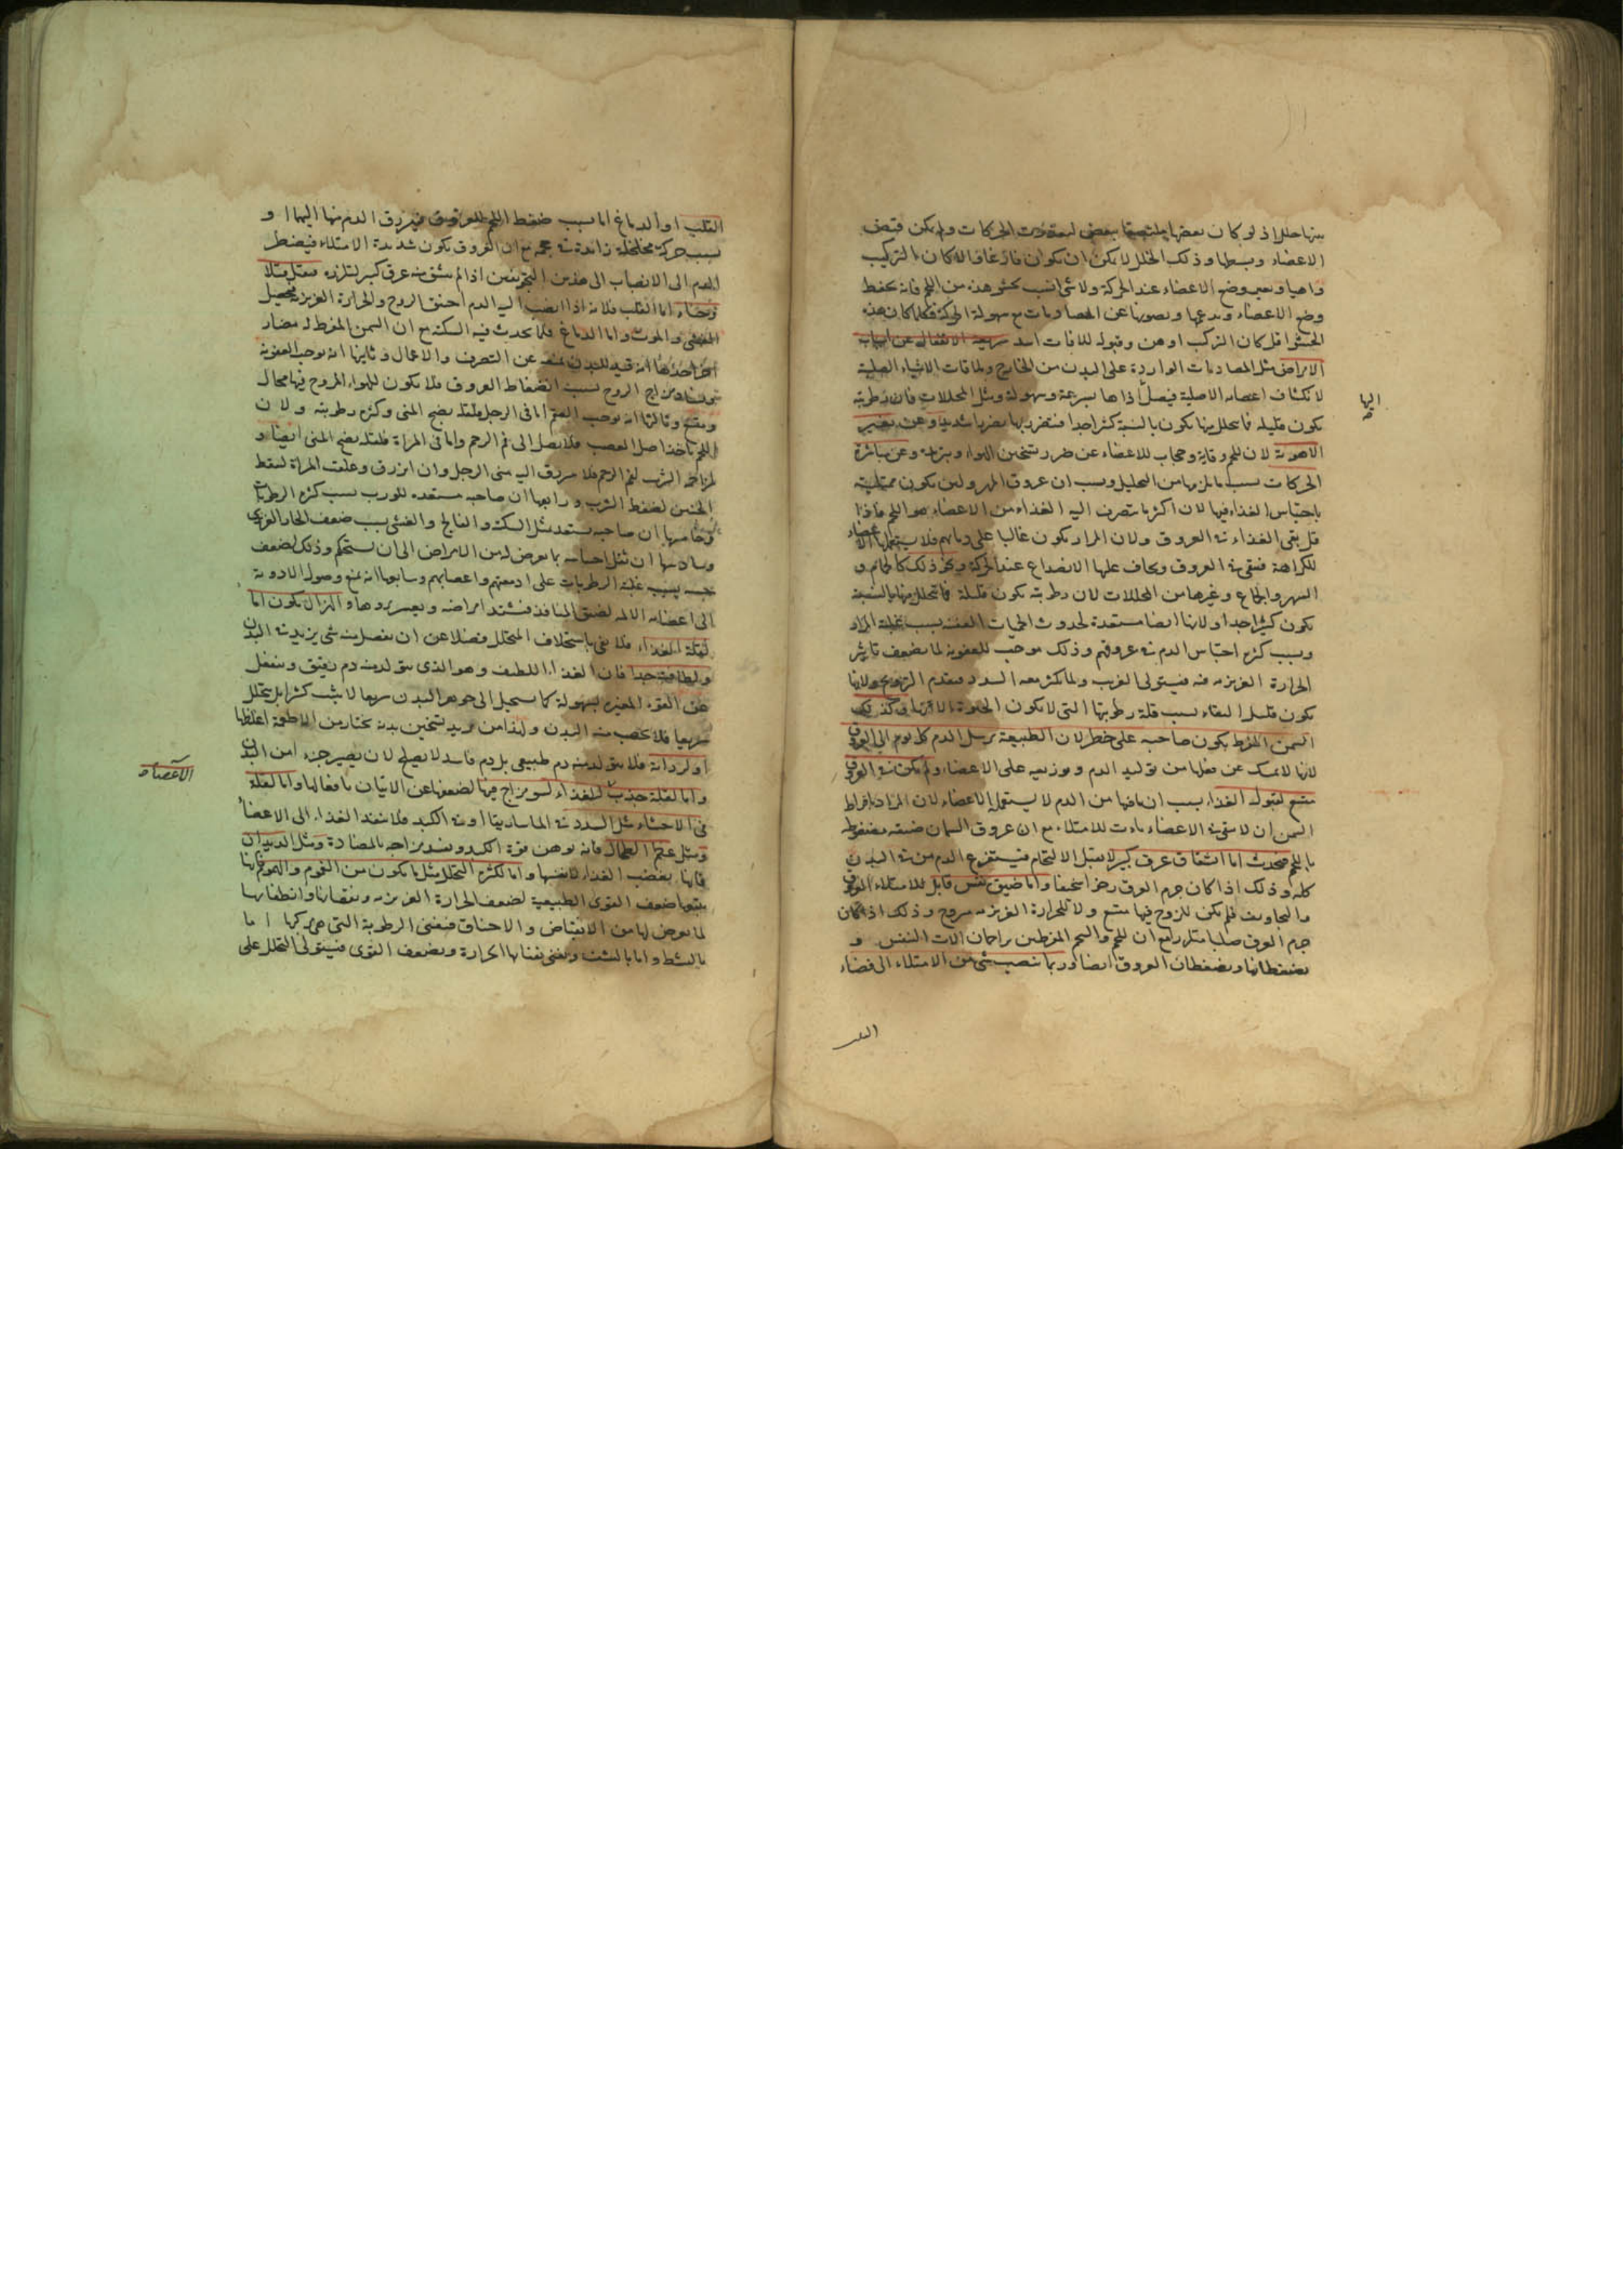 بينها خللا اذ لو كان بعضها ملتصقا ببعض لتعذرت الحركات ولم يكن قبض
الاعضاء وبسطها وذلك الخلل لا يمكن ان يكون فارغا والا لكان التركيب
واهيا وتغير وضع الاعضاء عند الحركة ولا شئ انسب بحشو هذه من اللحم فانه يحفظ
وضع الاعضاء ويدعمها ويصونها عن المصادمات مع سهولة الحركة فكلما كان هذه
الحشو اقل كان التركيب اوهن وقبوله للافات اشد سريعة الانفعال عن اسباب
الامراض مثل المصادمات الواردة على البدن من الخارج وملاقات الاشياء الصلبة
لانكشاف اعضائه الاصلية فيصل أذاها بسرعة وسهولة ومثل المحللات فان رطوبته
يكون قليله فما يتحلل منها يكون بالنسبة كثيرا جدا فتضرر بها تضررا شديدا وعن تغير
الاهوية لان اللحم وقاية وحجاب للاعضاء عن ضرر تسخين الهواء وتبريده وعن مباشرة
الحركات بسبب ما يلزمها من التحليل وبسبب ان عروق المهزولين يكون ممتلية
باحتباس الغذاء فيها لان اكثر ما يتصرف اليه الغذاء من الاعضاء هو اللحم فاذا
قل بقى الغذاء فى العروق ولان المرار يكون غالبا على دمائهم فلا يستعملها الاعضاء
للكراهة فتبقى فى العروق ويخاف عليها الانصداع عند الحركة ونحو ذلك كالحمام و
السهر والجماع وغيرها من المحللات لان رطوبته يكون قليلة فما يتحلل منها بالنسبة
يكون كثيرا جدا ولانها ايضا مستعدة لحدوث الحميات العفنة بسبب غلبة المرار
وبسبب كثرة احتباس الدم فى عروقهم وذلك موجب للعفونة لما يضعف تاثير
الحرارة الغريزيه فيه فيستولى الغريب ولما يكثر معه السدد
يكون قليل البقاء بسبب قلة رطوبتها التى لا يكون الحيوة الا بها وكذلك
السمن المفرط يكون صاحبه على خطر لان الطبيعة ترسل الدم كل يوم الى العروق
لانها لا تمسك عن فعلها من توليد الدم وتوزيعه على الاعضاء ولم يكن فى العروق
متسع لقبوله الغذاء بسبب ان ما فيها من الدم لا يستعمله الاعضاء لان المراد بافراط
السمن ان لا يبقى فى الاعضاء للامتلاء مع ان عروق السمان ضيقه منضغطه
باللحم فيحدث اما انشقاق عرق كبير لا يقبل الالتحام فيستفرغ الدم من البدن
كله وذلك اذا كان جرم العرق رخوا سخيفا واما ضيق نفس قاتل للامتلاء العروق
والتجاويف فلم يكن للروح فيها متسع ولا للحرارة الغريزيه مروح وذلك اذا كان
جرم العرق صلبا مع ان اللحم والشحم المفرطين يزاحمان الات التنفس و
يضغطانها ويضغطان العروق ايضا وربما ينصب شئ من الامتلاء الى فضاء
اليها
القلب
القلب او الدماغ اما بسبب ضغط اللحم للعروق فينزرق الدم منها اليهما او
بسبب حركة مخلخلة زائدة فى حجمه مع ان العروق يكون شديدة الامتلاء فيضطر
الدم الى الانصباب الى هذين التجويفين اذا لم ينشق منه عرق كبير فيقتل قتلا
وفجاء اما القلب فلانه اذا انصب اليه الدم احتنق الروح والحرارة الغريزيه فيحصل
الغشى والموت واما الدماغ فلما يحدث فيه السكتة مع ان السمن المفرط له مضار
اخر احدها انه قيد للبدن يمنعه عن التصرف والاعمال وثانيها انه يوجب العفونة
وفساد مزاج الروح بسبب انضغاط العروق فلا يكون للهواء المروح فيها مجال
ومتسع وثالثها انه يوجب العقم اما فى الرجل فلقلة نضج المنى وكثرة رطوبته ولان
اللحم ياخذ اصل العصب فلا يصل الى فم الرحم واما فى المراة فلقلة نضج المنى ايضا و
لمزاحمة الثرب لفم الرحم فلا ينزرق اليه منى الرجل وان انزرق وعلقت المراة اسقط
الجنين لضغط الثرب ورابعها ان صاحبه مستعد للورب بسبب كثرة الرطوبات
وخامسها ان صاحبه يستعد مثل السكتة والفالج والغشى بسبب ضعف الحار الغريزى
وسادسها ان يقل احساسه بما يعرض له من الامراض الى ان يستحكم وذلك لضعف
حسه بسبب غلبة الرطوبات على ادمغتهم واعصابهم وسابعها انه يمنع وصول الادوية
الى اعضائه الالمه لضيق المنافذ فيشتد امراضه ويعسر برؤها والهزال يكون اما
لقلة الغذاء فلا يفى باستخلاف المتحلل فضلا عن ان يفضل منه شئ يزيد فى البدن
ولطافته جدا فان الغذاء اللطيف وهو الذى يتولد منه دم رقيق وينفعل
عن القوة المغيره بسهولة كما يستحيل الى جوهر البدن سريعا لا يثبت كثيرا بل يتحلل
سريعا فلا يخصب منه البدن ولهذا من يريد تسخين بدنه يختار من الاطعمة اغلظها
او لرداءته فلا يتولد منه دم طبيعى بل دم فاسد لا يصلح لان يصير جزءا من البدن
واما لقلة جذب للغذاء لسو مزاج فيها لضعفها عن الاتيان بافعالها واما لعلة
فى الاحشاء مثل السدد فى الماساريقا او فى الكبد فلا ينفذ الغذاء الى الاعضاء
ومثل عظم الطحال فانه يوهن قوة الكبد ويفسد مزاجه بالمضادة ومثل الديدان
فانها يغصب الغذاء لانفسها واما لكثرة التحلل مثل ما يكون من الغموم والهموم فانها
يتبعها ضعف القوى الطبيعية لضعف الحرارة الغريزيه ونقصانها وانطفائها
لما يعرض لها من الانقباض والاختناق فيفنى الرطوبة التى هى مركبها اما
بالنشف واما بالتشتت ويفنى بفنائها الحرارة ويضعف القوى فيستولى التحلل على
الاعضاء